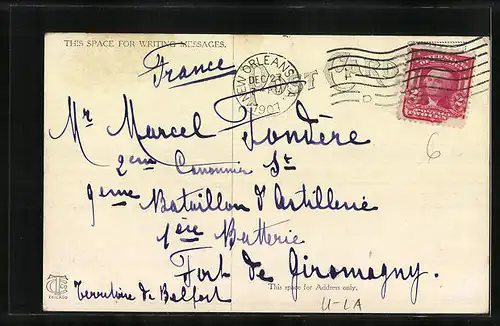 THIS SPACE FOR WRITING MESSAGES.
France
NEW ORLEANS, LA
DEC 27
1907
POST CARD
Mr Marcel Fondère
2eme Canonnier St
9eme Bataillon d'Artillerie
1ère Batterie
Fort de Giromagny.
Territoire de Belfort
This space for Address only.
CHICAGO
6
U-LA